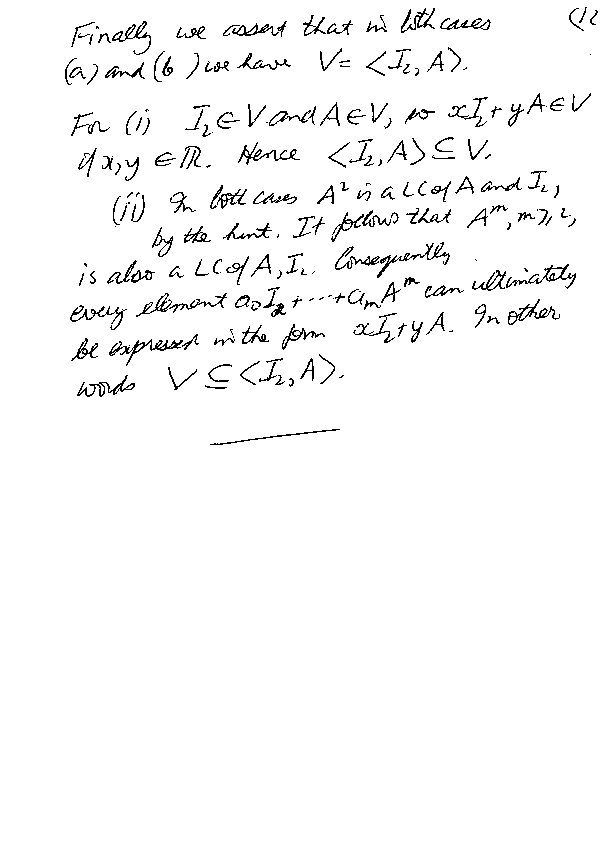 (12
Finally we assert that in both cases
(a) and (b) we have V = <I₂, A>.
For (i) I₂ ∈ V and A ∈ V, so xI₂ + yA ∈ V
if x, y ∈ ℝ. Hence <I₂, A> ⊆ V.
(ii) In both cases A² is a LC of A and I₂,
by the hint. It follows that Aᵐ, m ≥ 2,
is also a LC of A, I₂. Consequently
every element a₀I₂ + ··· + aₘAᵐ can ultimately
be expressed in the form xI₂ + yA. In other
words V ⊆ <I₂, A>.